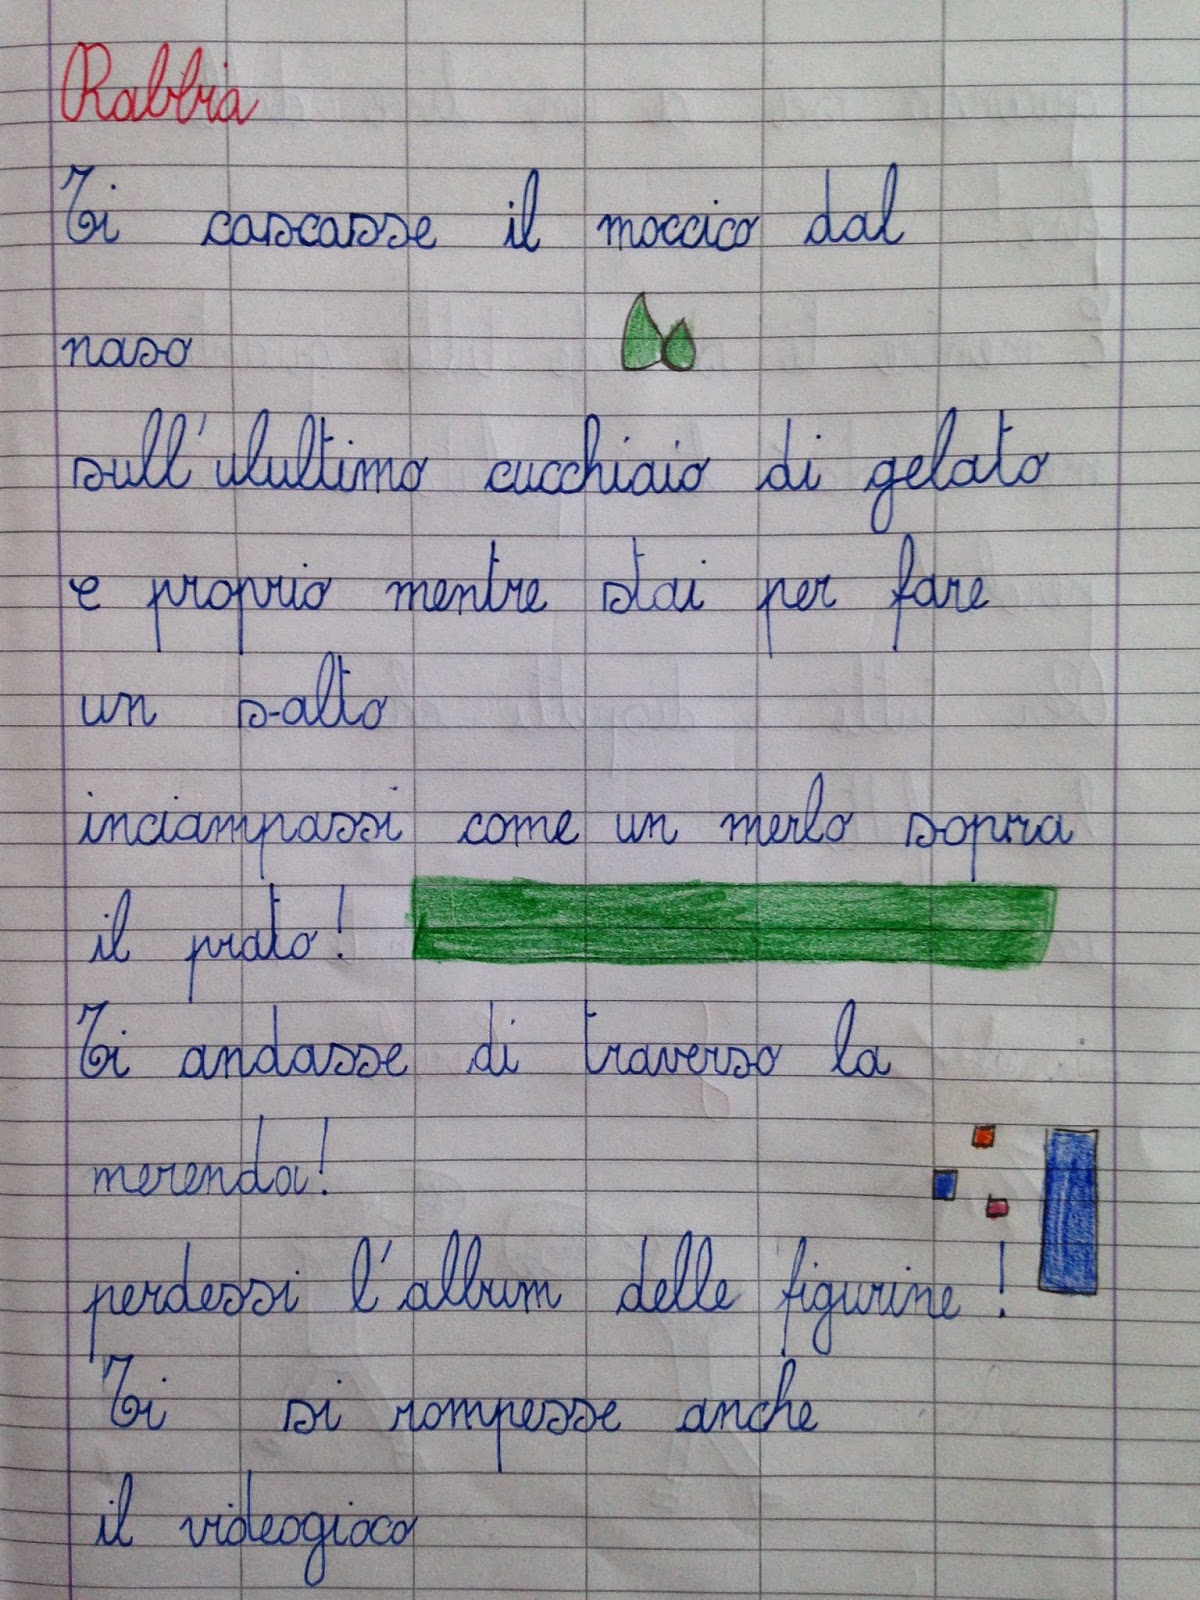 Rabbia
Ti cascasse il moccico dal
naso
sull'ulultimo cucchiaio di gelato
e proprio mentre stai per fare
un s-alto
inciampassi come un merlo sopra
il prato!
Ti andasse di traverso la
merenda!
perdessi l'album delle figurine!
Ti si rompesse anche
il videogioco